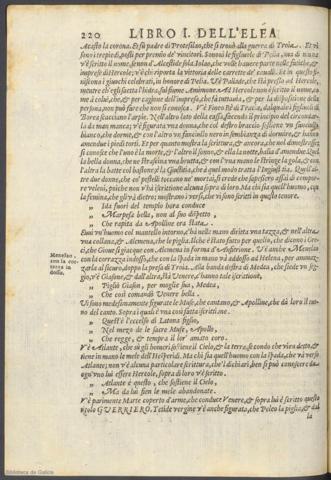 220 LIBRO I. DELL'ELEA
Acasto la corona. Et fu padre di Protesilao, che si trouò alla guerra di Troia. Et vi
sono i trepiedi, posti per premio de' vincitori. Sonoui le figliuole di Pelia, ma di niuna
v'è scritto il nome, senon d'Alceste sola. Iolao, che volle hauere parte nelle fatiche, &
imprese di Hercole; v'è chi riporta la vittoria delle carrette de' caualli. Et in questo
sono i giuochi celebrati, in honore di Pelia. V'è Pallade, che stà appresso ad Hercole,
mentre ch'egli saetta l'hidra, sul fiume Animone. Ad Hercole non è iscritto il nome, co
me à colui, che & per cagione dell'impresa, & per la dispositione della
persona, non può fare che non si conosca. V'è Fineo Rè di Tracia, dal quale i figliuoli di
Borea scacciano l'arpie. Nell'altro lato della cassa, facendo il principio del circuito
la man manca; v'è figurata vna donna, che col destro braccio sostiene vn fanciullo
bianco, che dorme, & con l'altro vn fanciullo nero in sembianza di dormire, & hà
amendue i piedi torti. Et per quanto mostra la scrittura, & ancora, che noi da noi stessi
si conosce che l'uno è la morte, & l'altro il sonno, & ella la notte, balia d'amendue. Quel
la bella donna, che ne strascina vna brutta, & con l'vna mano le stringe la gola, & con
l'altra la batte col bastone; è la Giustitia, che à quel modo tratta l'Ingiustitia. Quell'al
tre due donne, che co' pestelli toccano ne' mortai, si crede che sapessero assai di compor
re veleni, poiche non v'hà iscrittione alcuna sopra di loro. Ma chi sia quell'huomo, con
la femina, che gli và dietro; mostrano i versi, che vi sono scritti in questo tenore.
„ Ida fuori del tempio hora conduce
„ Marpesa bella, non al suo dispetto,
„ Che rapita da Apolline era stata.
Euui vn'huomo col mantello intorno, hà nella mano diritta vna tazza, & nell'altra
vna collana, & Alcmena, che le piglia. Si che è stato fatto per quello, che dicono i Gre-
ci, che Gioue si giacque con Alcmena in forma d'Anfitrione. V'è anche Menelao
con la corazza indosso, che con la spada in mano và addosso ad Helena, per ammaz-
zarla al sicuro, doppo la presa di Troia. Alla banda destra di Medea, che siede in seg-
gio, v'è Giasone, & dall'altra, stà Venere, & hanno tale iscrittione,
„ Pigliò Giason, per moglie sua, Medea,
„ Che così comandò Venere bella.
Vi sono medesimamente figurate le Muse, che cantano, & Apolline, che dà loro il tuo
no del canto. Sopra i quali è vna così fatta iscrittione.
„ Quest'è l'eccelso di Latona figlio,
„ Nel mezo de le sacre Muse, Apollo,
„ Che regge, & tempra il lor' amato coro.
V'è Atlante, che sù gli homeri, sostiene il Cielo, & la terra, secondo che viene detto, &
tiene in mano le mele dell'Hesperidi. Ma chi sia quell'huomo con la spada, che và verso
Atlante; non v'è alcuna particolare scrittura, che'l dichiari, ben si può conoscere da
ogn'vno lui essere Hercole, sopra di loro v'è scritto.
„ Atlante è questo, che sostiene il Cielo,
„ Ma da lui fien le mele abandonate.
V'è parimente Marte coperto d'arme, che conduce Venere, & sopra lui è scritto questo
titolo GVERRIERO. Tetide vergine v'è anche figurata, che Peleo la piglia, & dal
la
Menelao
con la co-
razza in
dosso.
Biblioteca de Galicia